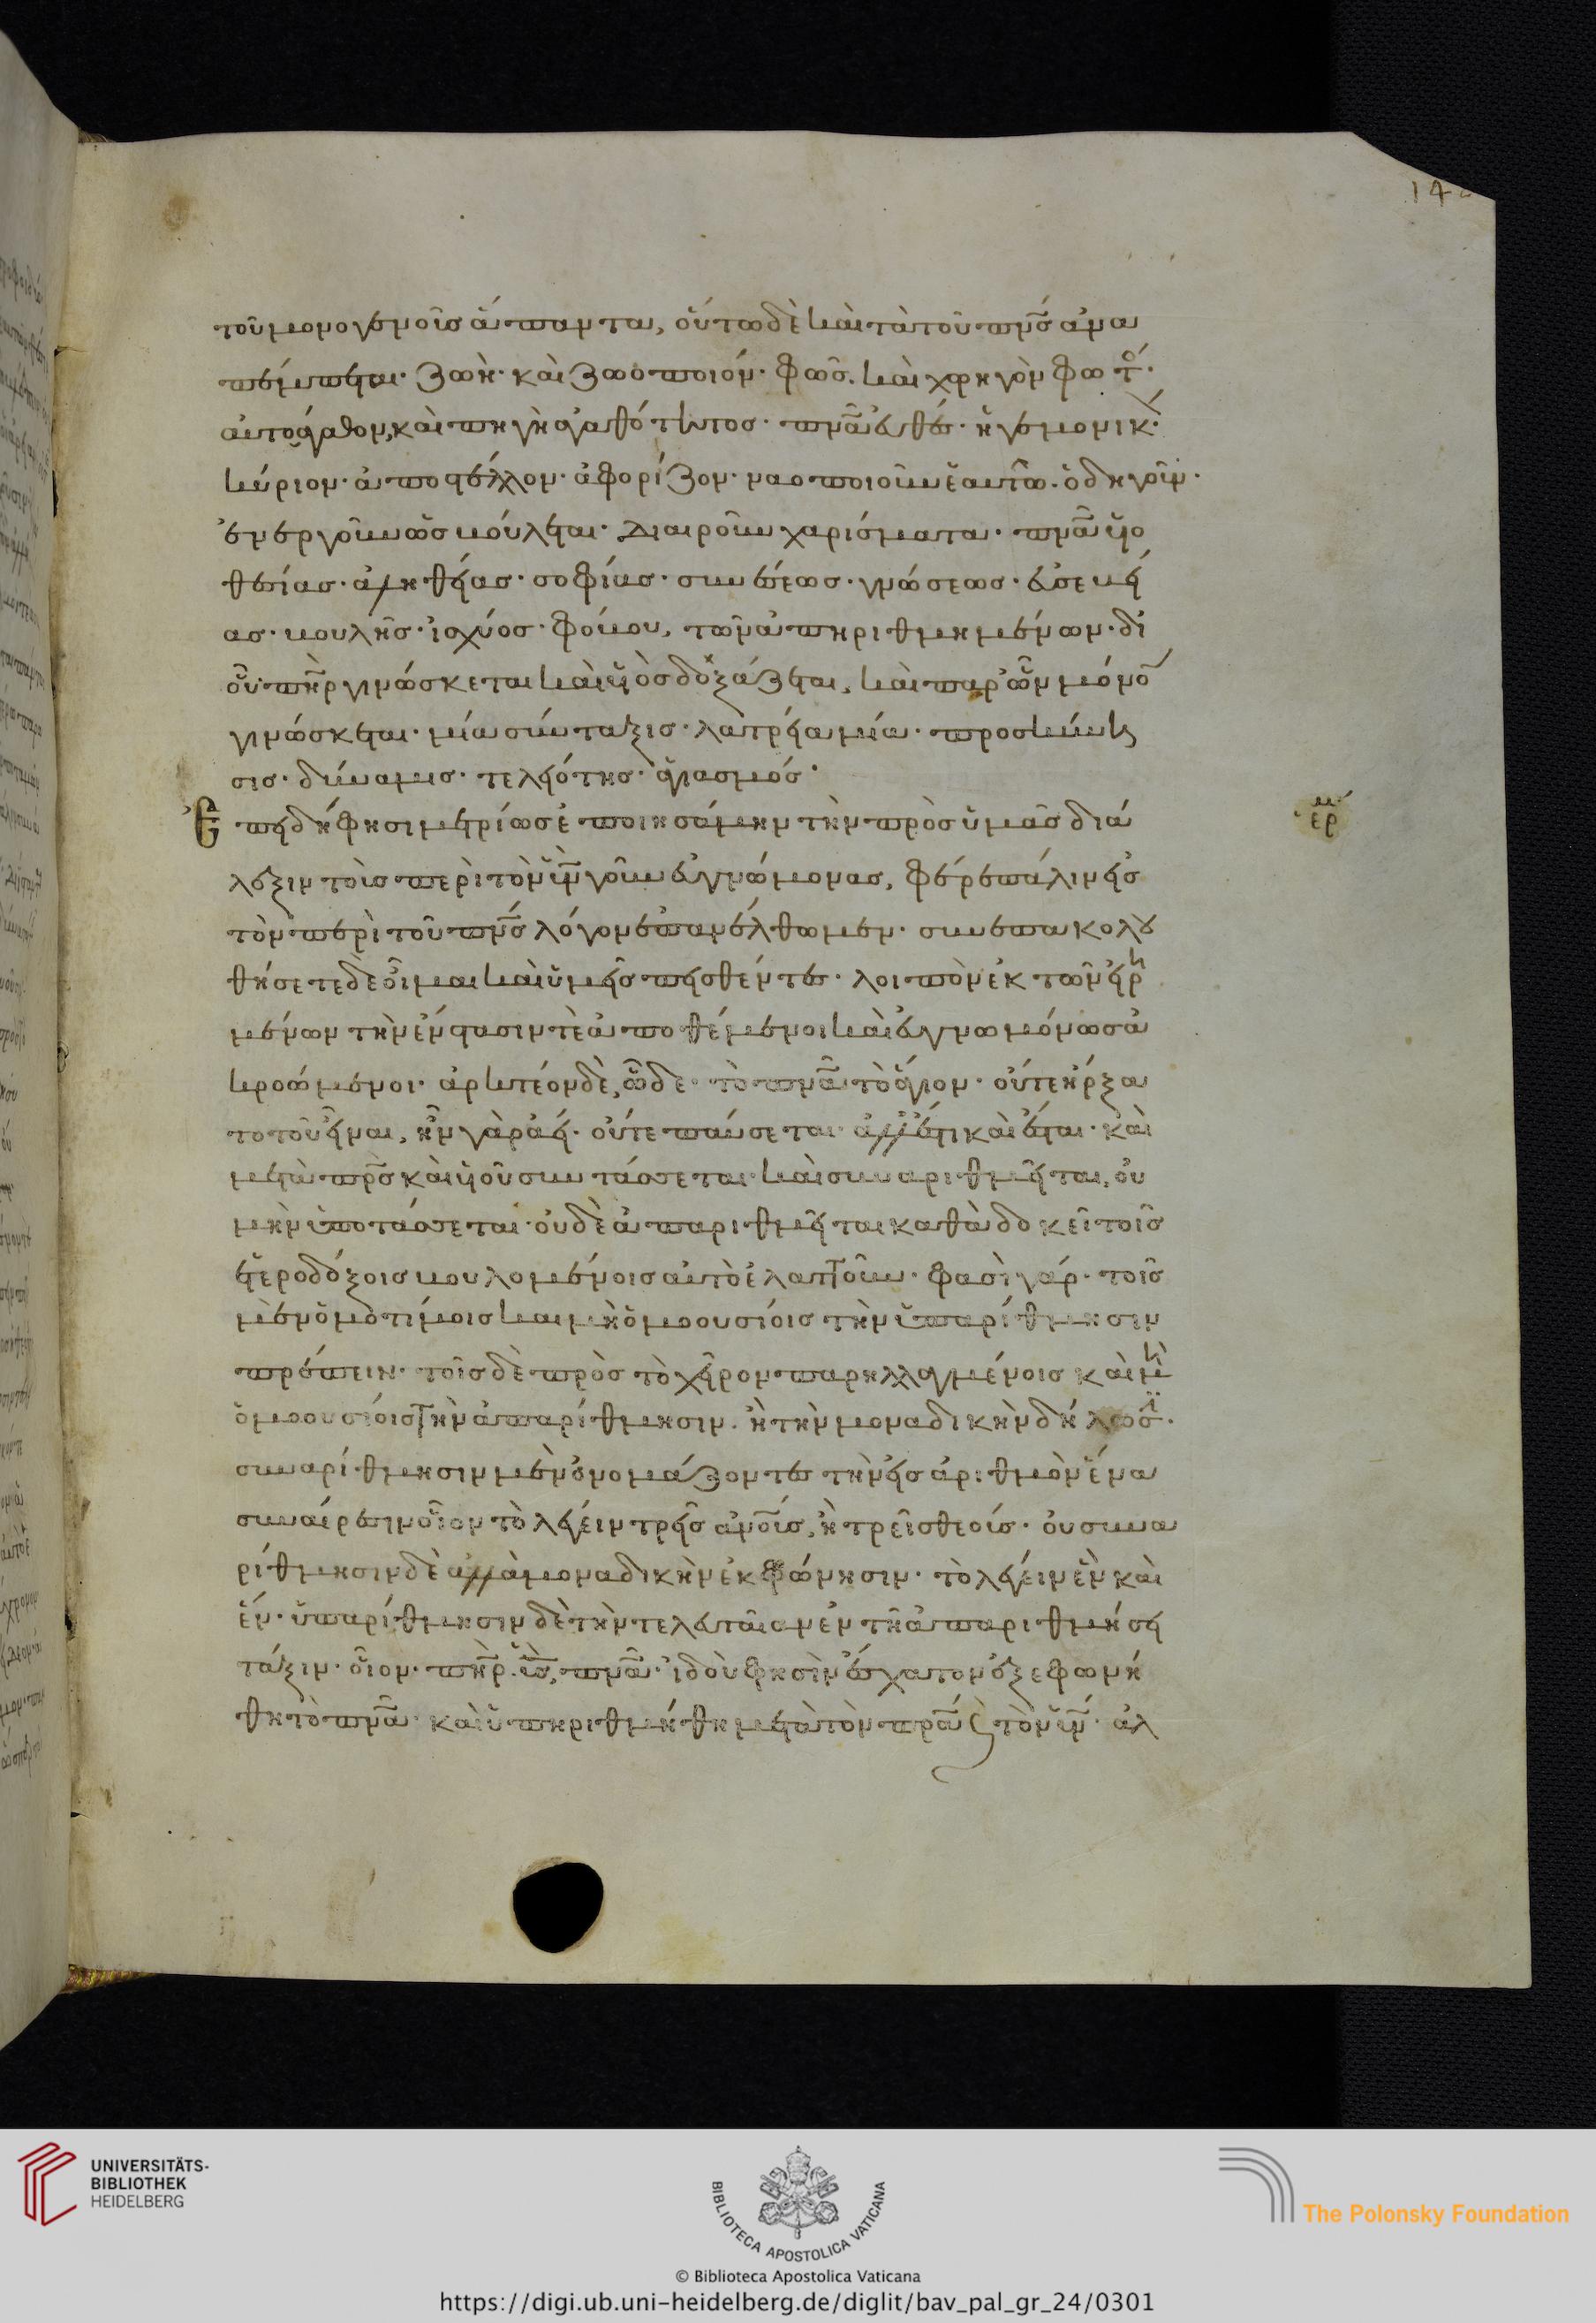 14
τοῦ μονογενοῦς ἅπαντα, οὕτω δὲ καὶ τὰ τοῦ πνς ἀνα
πέμπεται· ζωὴ· καὶ ζωοποιόν· φῶς· καὶ χορηγὸν φωτ·
αὐτοάγαθον, καὶ πηγὴ ἀγαθότητος· πνα εὐθές· ἡγεμονικ·
κύριον· ἀποστέλλον· ἀφορίζον· ναοποιοῦν ἑαυτῶ· ὁδηγοῦν·
ἐνεργοῦν ὡς βούλεται· διαιροῦν χαρίσματα· πνα υἱο
θεσίας· ἀληθείας· σοφίας· συνέσεως· γνώσεως· εὐσεβεί
ας· βουλῆς· ἰσχύος· φόβου, τῶν ἀπηριθμημένων· δι
οὗ πηρ γινώσκεται καὶ υἱὸς δοξάζεται, καὶ παρ' ὧν μόνο
γινώσκεται· μία σύνταξις· λατρεία μία· προσκύνη
σις· δύναμις· τελειότης· ἁγιασμός·
Ἐπειδή φησι μετρίως ἐποιησάμην τὴν πρὸς ὑμᾶς διά
λεξιν τοῖς περὶ τὸν υἱν γοῦν εὐγνώμονας, φέρε πάλιν εἰς
τὸν περὶ τοῦ πνς λόγον ἐπανέλθωμεν· συνεπακολου
θήσετε δὲ οἶμαι καὶ ὑμεῖς πεισθέντες· λοιπὸν ἐκ τῶν εἰρη
μένων τὴν ἔνστασίν τε ἀποθέμενοι καὶ εὐγνωμόνως ἀ
κροώμενοι· ἀρκτέον δὲ, ὧδε· τὸ πνα τὸ ἅγιον· οὔτε ἤρξα
το τοῦ εἶναι, ἦν γὰρ ἀεί· οὔτε παύσεται· ἀλλ' ἔστι καὶ ἔσται· καὶ
μετὰ πρς καὶ υἱοῦ συντάσσεται καὶ συναριθμεῖται, οὐ
μὴν ὑποτάσσεται· οὐδὲ ἀπαριθμεῖται καθὰ δοκεῖ τοῖς
ἑτεροδόξοις βουλομένοις αὐτὸ ἐλαττοῦν· φασὶ γάρ· τοῖς
μὲν ὁμοτίμοις καὶ μὴ ὁμοουσίοις τὴν ὑπαρίθμησιν
πρέπειν· τοῖς δὲ πρὸς τὸ χεῖρον παρηλλαγμένοις καὶ μὴ
ὁμοουσίοις τὴν ἀπαρίθμησιν· ἢ τὴν μοναδικὴν δή
συναρίθμησιν μὲν ὀνομάζοντες τὴν εἰς ἀριθμὸν ἕνα
συναίρεσιν οἷον τὸ λέγειν τρεῖς ανους, ἢ τρεῖς θεούς· οὐ συνα
ρίθμησιν δὲ ἀλλὰ μοναδικὴν ἐκφώνησιν· τὸ λέγειν ἓν καὶ
ἕν· ὑπαρίθμησιν δὲ τὴν τελευταίαν ἐν τῆ ἀπαριθμήσει
τάξιν· οἷον· πηρ· υς, πνα· ἰδοὺ φησὶν ἔσχατον ἐξεφωνή
θη τὸ πνα· καὶ ὑπηριθμήθη μετὰ τὸν πρα καὶ τὸν υἱν· ἀλ
ερμ
UNIVERSITÄTS-
BIBLIOTHEK
HEIDELBERG
BIBLIOTECA APOSTOLICA VATICANA
The Polonsky Foundation
© Biblioteca Apostolica Vaticana
https://digi.ub.uni-heidelberg.de/diglit/bav_pal_gr_24/0301